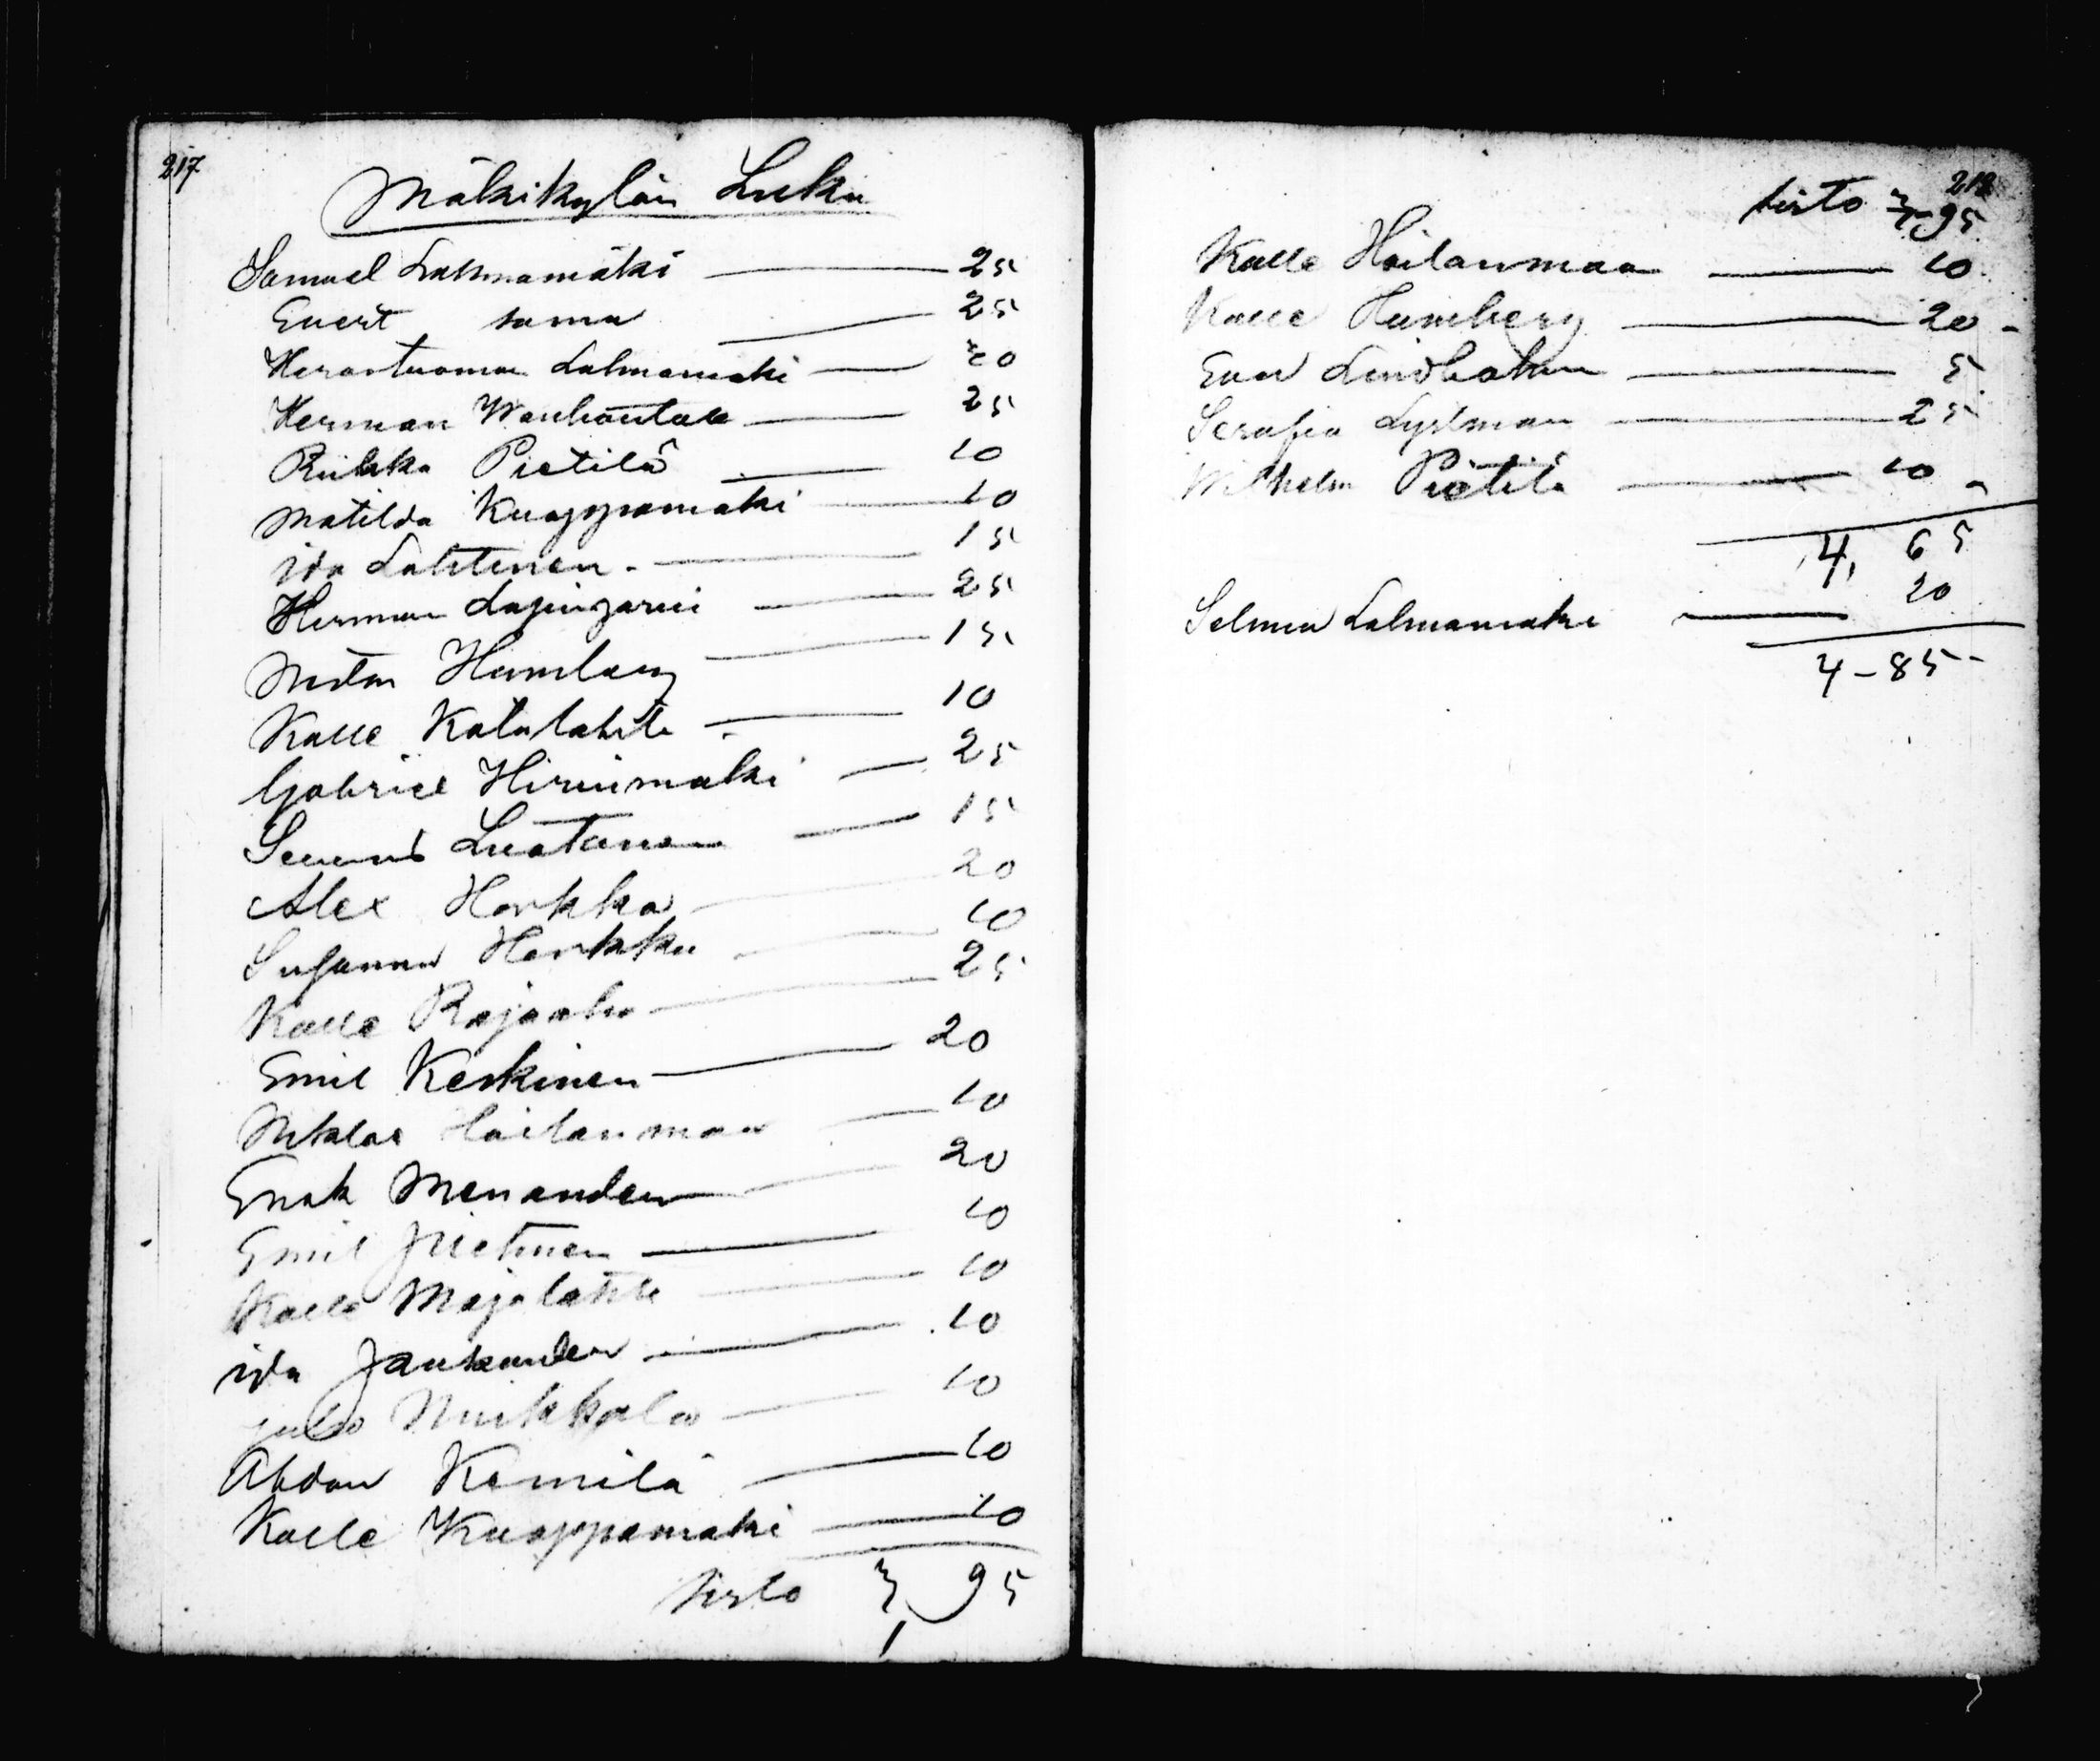 217
Mäkikylän Luku
Samuel Lahnamäki 25
Evert sama 25
Herastuoman Lahnamäki 20
Herman Wanhantalo 25
Riikka Pietilä 10
Matilda Kuoppamäki 10
ida Lahtinen 15
Herman Lapinjarvi 25
Humberg 15
Kalle Katalahti 10
Gabriel Hirvimäki 25
Luotanen 15
Alex Honkka 20
Susanna Honkka 10
Kalle Rajaaho 25
Emil Keskinen 20
Niklas Hoilanmaa 10
Erick Menander 20
Emil 10
Kalle Majalahti 10
ida 10
Mirkkala 10
Akdon Kemilä 10
Kalle Kuoppamäki 10
sirto 3,95
218
siirto 3-95
Kalle Hoilanmaa 10
Kalle Humberg 20 -
Eva Lindholm 5
Serafia Lystman 25
Wilhelm Pietilä 10
4, 65
Selma Lahnamäki 20
4-85-